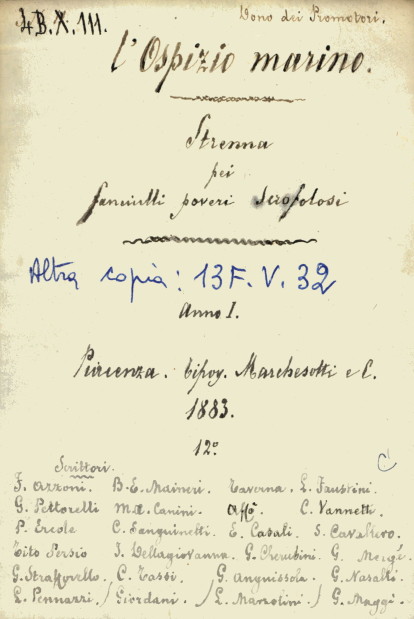 4.B.X.111.
Dono dei Promotori.
l'Ospizio marino.
Strenna
pei
fanciulli poveri scrofolosi
Altra copia: 13 F. V. 32
Anno I.
Piacenza. Tipog. Marchesotti e C.
1883.
12°
Scrittori.
F. Azzoni. B. E. Maineri. Taverna. L. Faustini.
G. Pettorelli M. A. Canini. Affò. C. Vannetti.
P. Ercole C. Sanguinetti. E. Casali. S. Cavallero.
Tito Persio I. Dellagiovanna. G. Cherubini. G.
G. Strafforello. C. Tassi. G. Anguissola. G. Nasalli.
L. Pennazzi. / Giordani. / L. Marzolini. / G. Maggi.